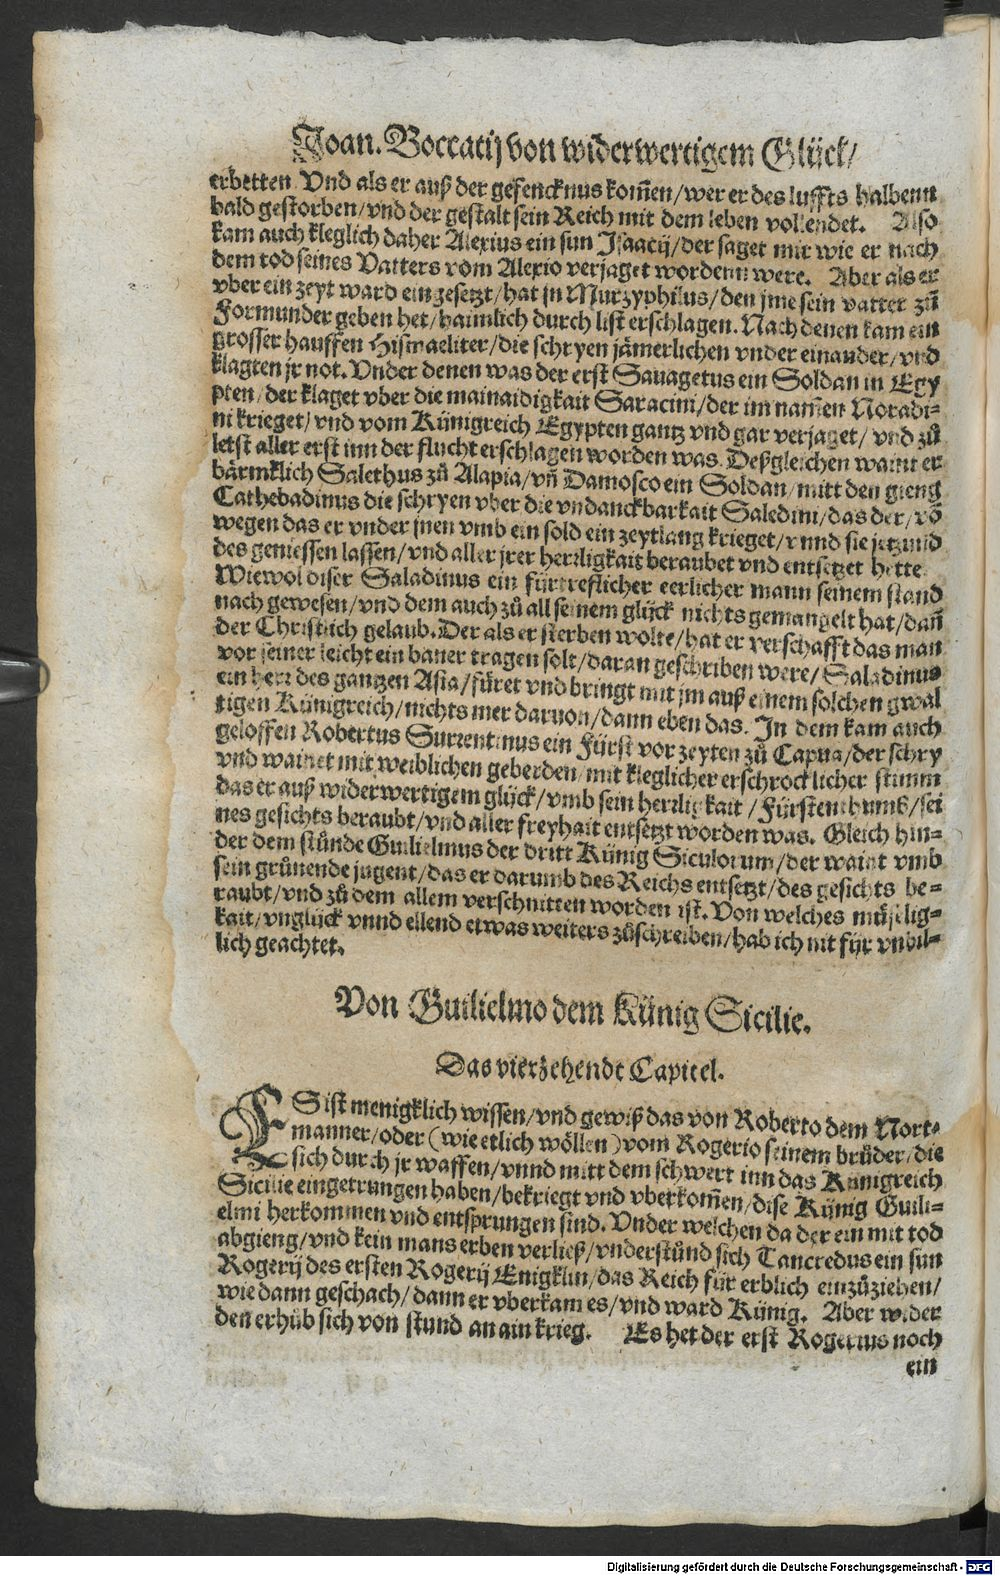 Joan. Boccatij von widerwertigem Glück/
erbetten. Vnd als er auß der gefencknus kom̃en/wer er des luffts halbenn
bald gestorben/vnd der gestalt sein Reich mit dem leben vollendet. Also
kam auch kleglich daher Alexius ein sun Isaacij/der saget mir wie er nach
dem tod seines Vatters vom Alexio verjaget wordenn were. Aber als er
vber ein zeyt ward eingesetzt/hat jn Murzyphilus/den jme sein vatter zů
Formunder geben het/haimlich durch list erschlagen. Nach denen kam ein
grosser hauffen Hismaeliter/die schryen jämerlichen vnder einander/vnd
klagten jr not. Vnder denen was der erst Sauagetus ein Soldan in Egy
pten/der klaget vber die mainaidigkait Saracini/der im nam̃en Noradi-
ni krieget/vnd vom Künigreich Egypten gantz vnd gar verjaget/vnd zů
letst aller erst inn der flucht erschlagen worden was. Deßgleichen waint er
bärmklich Salethus zů Alapia/vñ Damosco ein Soldan/mitt den gieng
Cathebadinus die schryen vber die vndanckbarkait Saledini/das der/võ
wegen das er vnder jnen vmb ein sold ein zeytlang krieget/vnnd sie jetzund
des geniessen lassen/vnd aller jrer herrligkait beraubet vnd entsetzet hette
Wiewol diser Saladinus ein fürtreflicher eerlicher mann seinem stand
nach gewesen/vnd dem auch zů all seinem glück nichts gemangelt hat/dañ
der Christlich gelaub. Der als er sterben wolte/hat er verschafft das man
vor seiner leicht ein baner tragen solt/daran geschriben were/Saladinus
ein herr des gantzen Asia/füret vnd bringt mit jm auß einem solchen gwal
tigen Künigreich/nichts mer daruon/dann eben das. In dem kam auch
geloffen Robertus Surrentinus ein Fürst vor zeyten zů Capua/der schry
vnd wainet mit weiblichen geberden/mit kleglicher erschrocklicher stimm
das er auß widerwertigem glück/vmb sein herrligkait/Fürstenthumß/sei
nes gesichts beraubt/vnd aller freyhait entsetzt worden was. Gleich hin-
der dem stůnde Guilielmus der dritt Künig Siculorum/der waint vmb
sein grůnende jugent/das er darumb des Reichs entsetzt/des gesichts be-
raubt/vnd zů dem allem verschnitten worden ist. Von welches müselig-
kait/vnglück vnnd ellend etwas weiters zůschreiben/hab ich nit für vnbil-
lich geachtet.
Von Guilielmo dem Künig Sicilie.
Das vierzehendt Capitel.
ES ist menigklich wissen/vnd gewiß das von Roberto dem Nort-
manner/oder (wie etlich wöllen) vom Rogerio seinem brůder/die
sich durch jr waffen/vnnd mitt dem schwert inn das Künigreich
Sicilie eingetrungen haben/bekriegt vnd vberkom̃en/dise Künig Guili-
elmi herkommen vnd entsprungen sind. Vnder welchen da der ein mit tod
abgieng/vnd kein mans erben verließ/vnderstůnd sich Tancredus ein sun
Rogerij des ersten Rogerij Enigklin/das Reich für erblich einzůziehen/
wie dann geschach/dann er vberkam es/vnd ward Künig. Aber wider
den erhůb sich von stund an ain krieg. Es het der erst Rogerius noch
ein
Digitalisierung gefördert durch die Deutsche Forschungsgemeinschaft - DFG